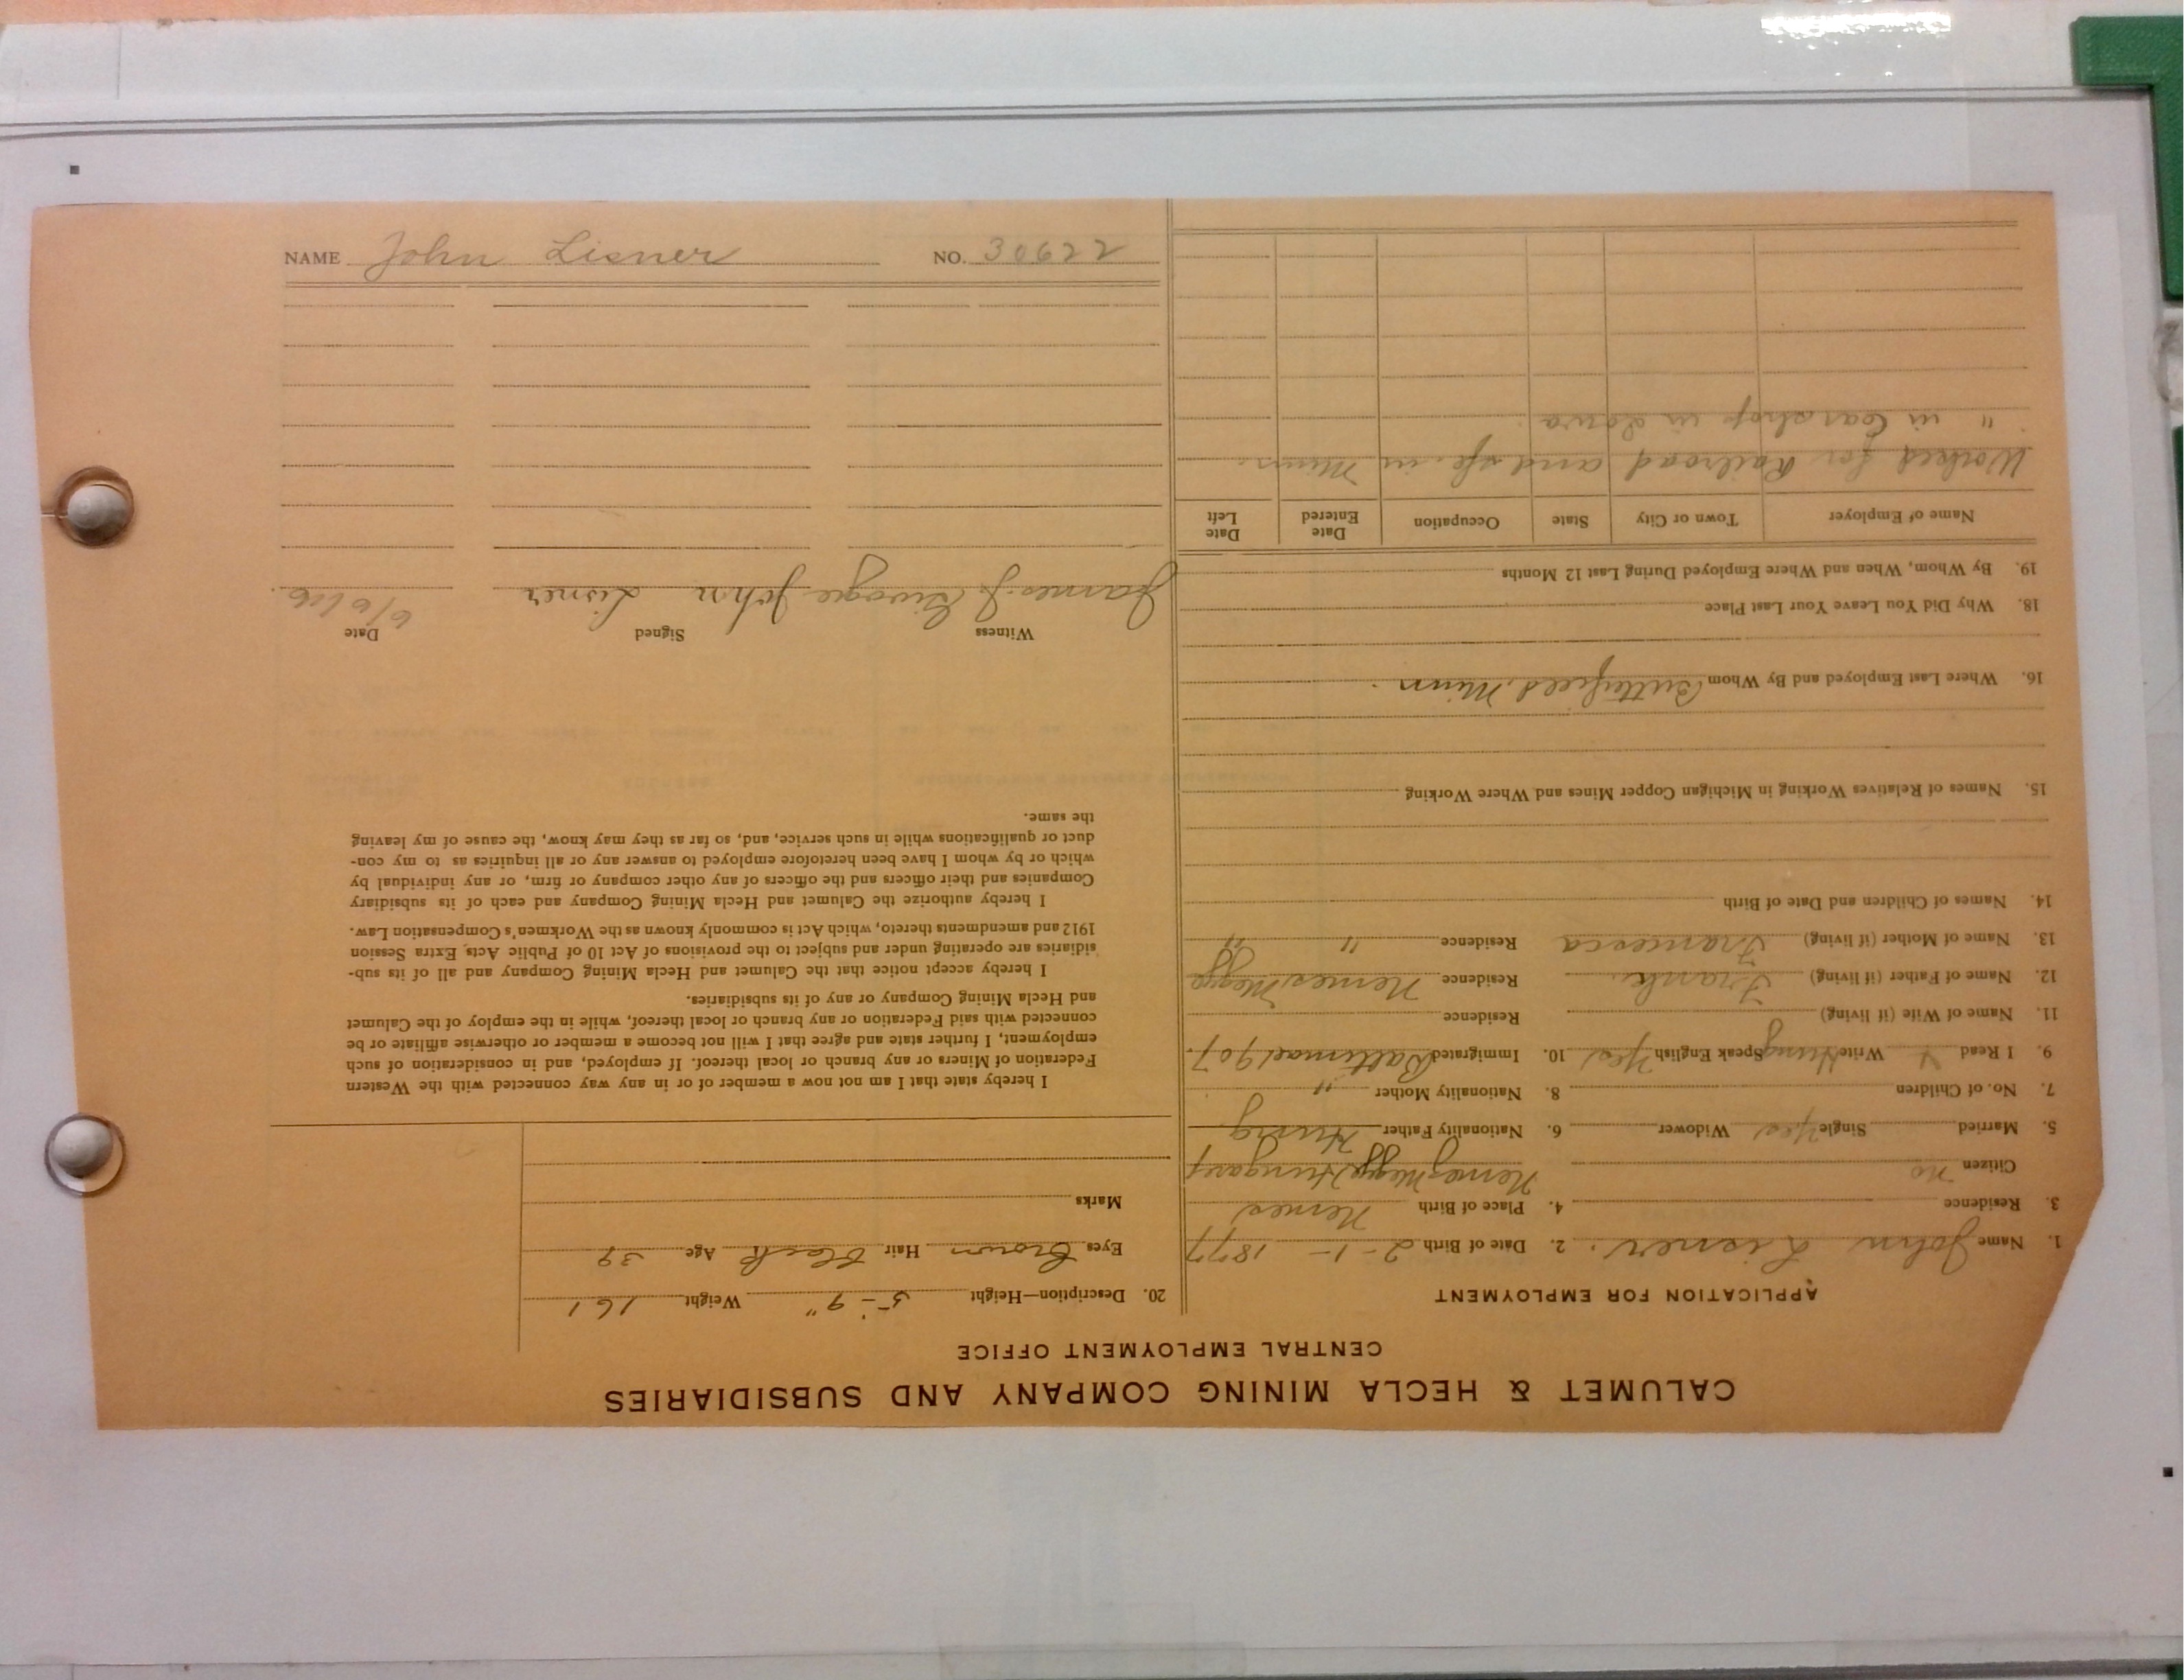 NAME John Lisner NO. 30622
CALUMET & HECLA MINING COMPANY AND SUBSIDIARIES
CENTRAL EMPLOYMENT OFFICE
APPLICATION FOR EMPLOYMENT
1. Name John Lisner. 2. Date of Birth 2-1-1877
3. Residence 4. Place of Birth Nemes
Citizen no Nemes Megye Hungary
5. Married Single Yes Widower 6. Nationality Father Hung
7. No. of Children 8. Nationality Mother "
9. I Read Write Hung Speak English Yes 10. Immigrated 1907.
11. Name of Wife (if living) Residence
12. Name of Father (if living) Frank. Residence Nemes Megye
13. Name of Mother (if living) Francesca Residence " "
14. Names of Children and Date of Birth
15. Names of Relatives Working in Michigan Copper Mines and Where Working
16. Where Last Employed and By Whom Butterfield Minn.
18. Why Did You Leave Your Last Place
19. By Whom, When and Where Employed During Last 12 Months
Name of Employer Town or City State Occupation Date Entered Date Left
Worked for Railroad and in Minn.
" in Carshop in Iowa.
20. Description—Height 5-9" Weight 161
Eyes Brown Hair Black Age 39
Marks
I hereby state that I am not now a member of or in any way connected with the Western
Federation of Miners or any branch or local thereof. If employed, and in consideration of such
employment, I further state and agree that I will not become a member or otherwise affiliate or be
connected with said Federation or any branch or local thereof, while in the employ of the Calumet
and Hecla Mining Company or any of its subsidiaries.
I hereby accept notice that the Calumet and Hecla Mining Company and all of its sub-
sidiaries are operating under and subject to the provisions of Act 10 of Public Acts, Extra Session
1912 and amendments thereto, which Act is commonly known as the Workmen's Compensation Law.
I hereby authorize the Calumet and Hecla Mining Company and each of its subsidiary
Companies and their officers and the officers of any other company or firm, or any individual by
which or by whom I have been heretofore employed to answer any or all inquiries as to my con-
duct or qualifications while in such service, and, so far as they may know, the cause of my leaving
the same.
Witness Signed Date
James J. John Lisner 6/6/16.